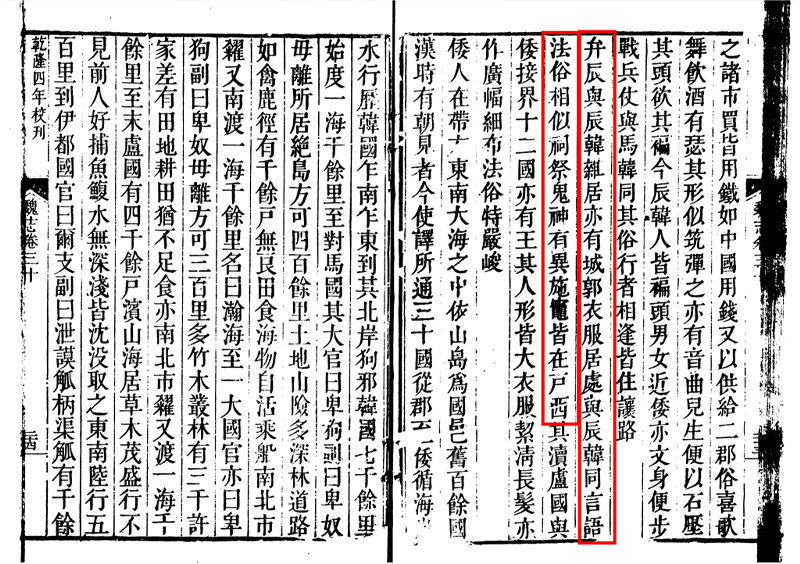 之諸市買皆用鐵如中國用錢又以供給二郡俗喜歌
舞飲酒有瑟其形似筑彈之亦有音曲兒生便以石壓
其頭欲其褊今辰韓人皆褊頭男女近倭亦文身便步
戰兵仗與馬韓同其俗行者相逢皆住讓路
弁辰與辰韓雜居亦有城郭衣服居處與辰韓同言語
法俗相似祠祭鬼神有異施竈皆在戸西其瀆盧國與
倭接界十二國亦有王其人形皆大衣服絜清長髮亦
作廣幅細布法俗特嚴峻
倭人在帶方東南大海之中依山島爲國邑舊百餘國
漢時有朝見者今使譯所通三十國從郡至倭循海
水行歷韓國乍南乍東到其北岸狗邪韓國七千餘里
始度一海千餘里至對馬國其大官曰卑狗副曰卑奴
毋離所居絶島方可四百餘里土地山險多深林道路
如禽鹿徑有千餘戸無良田食海物自活乘船南北市
糴又南渡一海千餘里名曰瀚海至一大國官亦曰卑
狗副曰卑奴毋離方可三百里多竹木叢林有三千許
家差有田地耕田猶不足食亦南北市糴又渡一海千
餘里至末盧國有四千餘戸濱山海居草木茂盛行不
見前人好捕魚鰒水無深淺皆沈没取之東南陸行五
百里到伊都國官曰爾支副曰泄謨觚柄渠觚有千餘
乾隆四年校刊
魏志卷三十